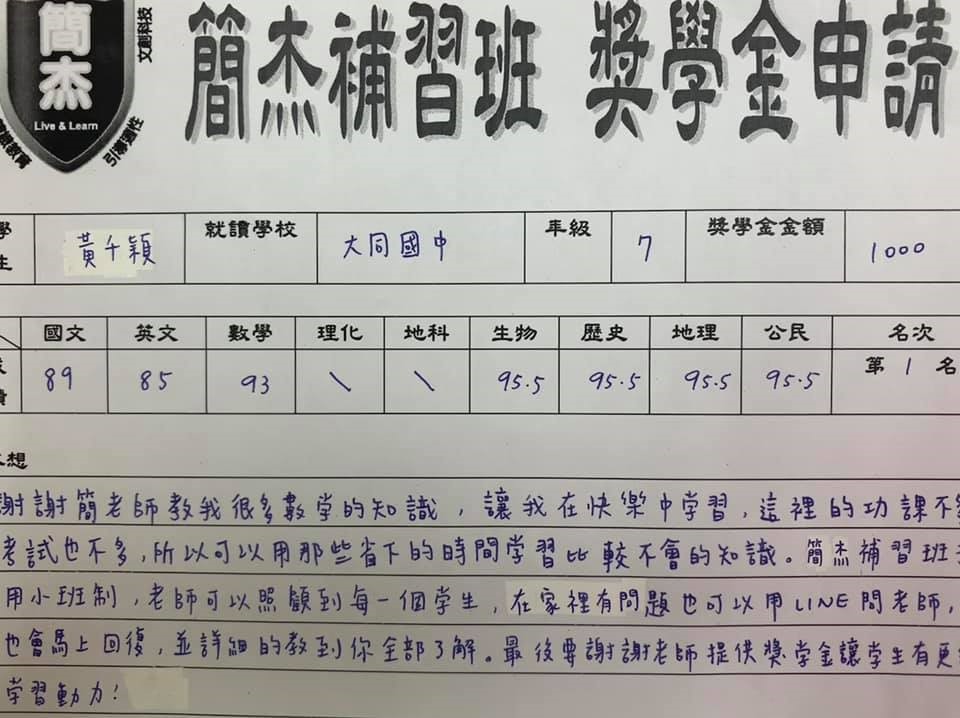 簡杰
Live & Learn
文創科技
引導適性
簡杰補習班 獎學金申請
學生 黃千穎 就讀學校 大同國中 年級 7 獎學金金額 1000
國文 英文 數學 理化 地科 生物 歷史 地理 公民 名次
89 85 93 \ \ 95.5 95.5 95.5 95.5 第 1 名
想
謝謝簡老師教我很多數学的知識，讓我在快樂中学習，這裡的功課不
考試也不多，所以可以用那些省下的時間学習比較不會的知識。簡杰補習班
用小班制，老師可以照顧到每一個学生，在家裡有問題也可以用LINE問老師，
也會馬上回復，並詳細的教到你全部了解。最後要謝謝老師提供獎学金讓学生有更
学習動力！